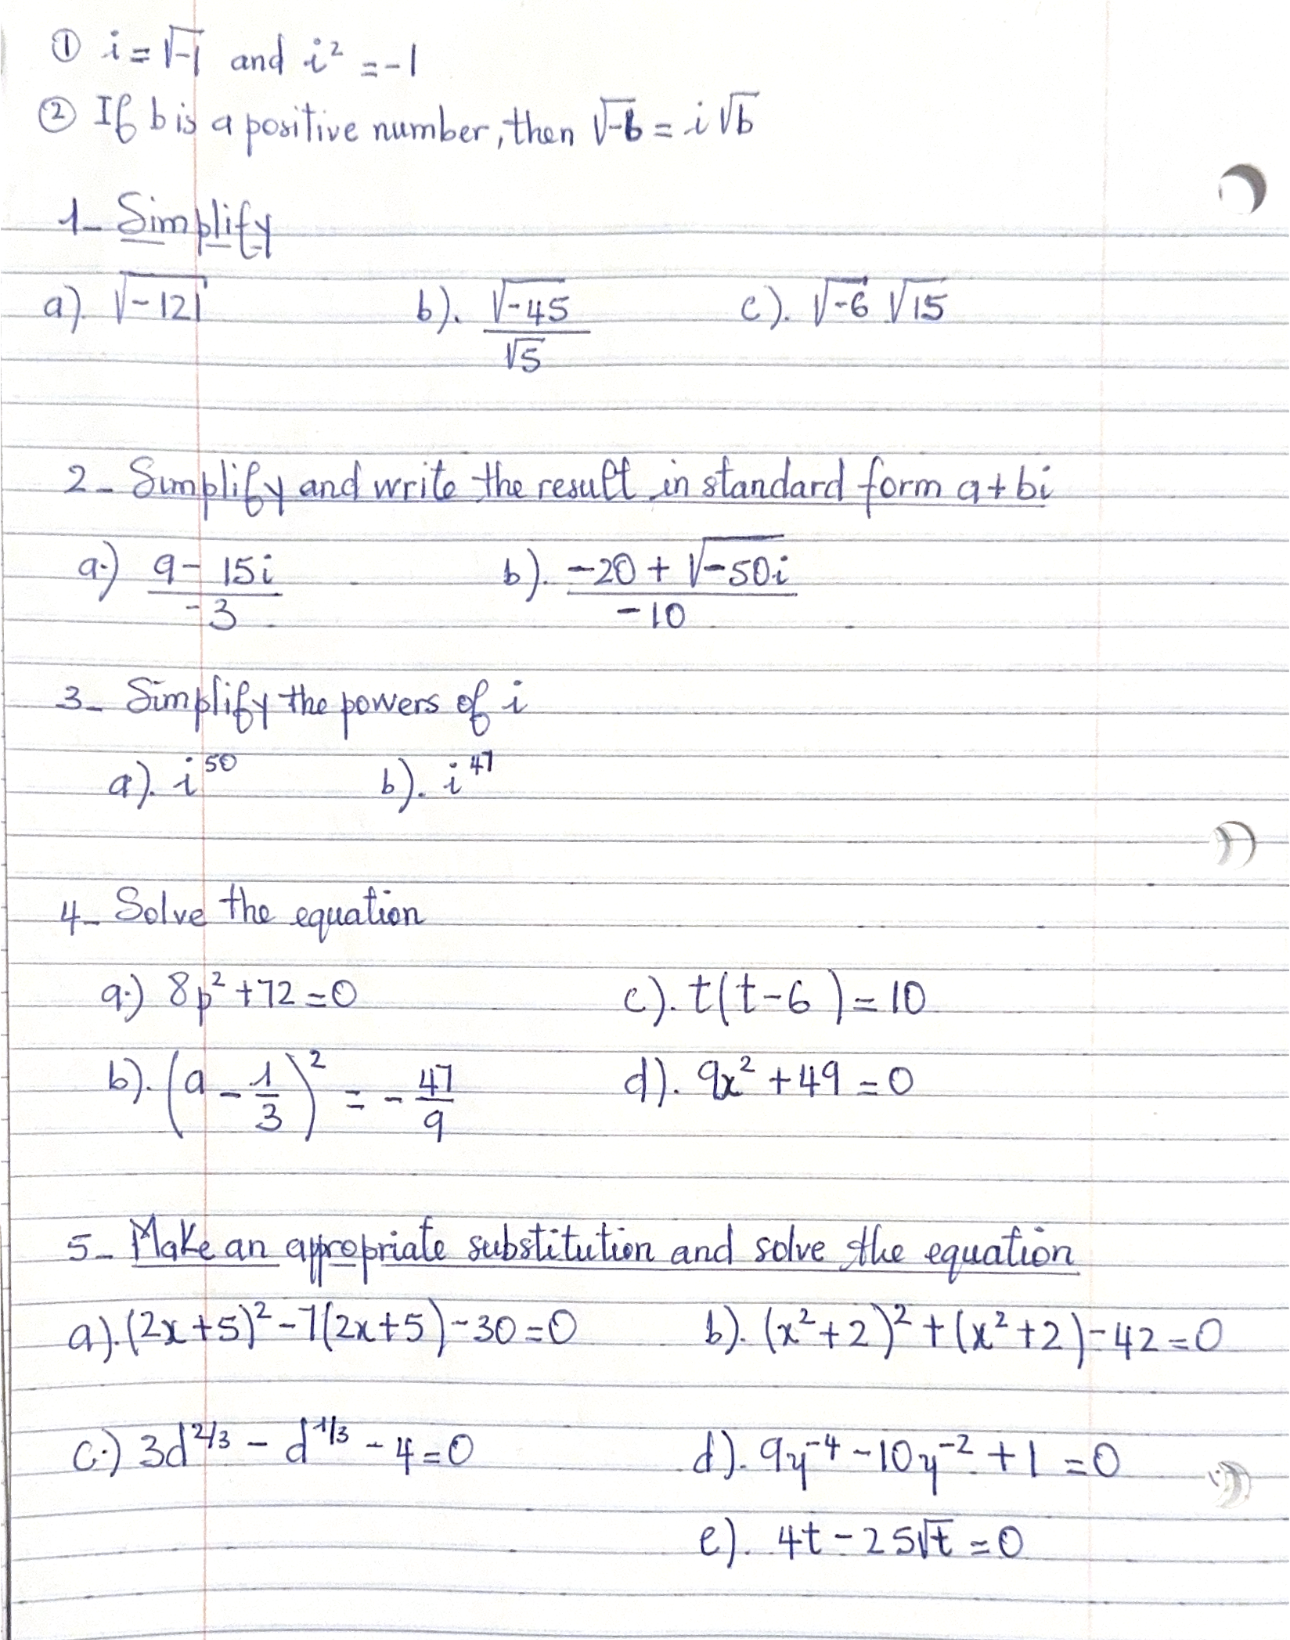 ① i = √-1 and i² = -1
② If b is a positive number, then √-b = i√b
1- Simplify
a). √-121 b). √-45 / √5 c). √-6 √15
2- Simplify and write the result in standard form a+bi
a.) 9-15i / -3 b). -20 + √-50i / -10
3- Simplify the powers of i
a). i⁵⁰ b). i⁴⁷
4- Solve the equation
a.) 8p² + 72 = 0 c). t(t-6) = 10
b). (a - 1/3)² = - 47/9 d). 9x² + 49 = 0
5- Make an appropriate substitution and solve the equation
a). (2x+5)² - 7(2x+5) - 30 = 0 b). (x²+2)² + (x²+2) - 42 = 0
c.) 3d^2/3 - d^1/3 - 4 = 0 d). 9y⁻⁴ - 10y⁻² + 1 = 0
e). 4t - 25√t = 0